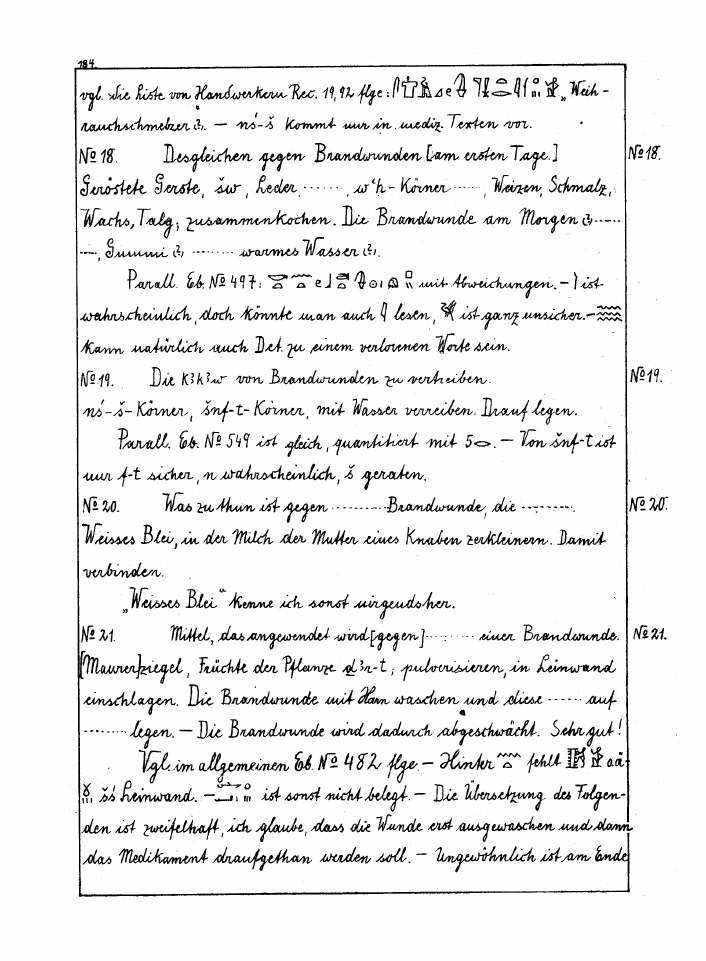 184.
vgl. die Liste von Handwerkern Rec. 19,92 flge: „Weih-
rauchschmelzer (?). — nś-š kommt nur in mediz. Texten vor.
No 18. Desgleichen gegen Brandwunden [am ersten Tage.] No 18.
Geröstete Gerste, šw, Leder ......., wʿḥ-Körner ......, Weizen, Schmalz,
Wachs, Talg; zusammenkochen. Die Brandwunde am Morgen (?) ......
...., Gummi (?) ........ warmes Wasser (?).
Parall. Eb. No 497: mit Abweichungen. — ist
wahrscheinlich, doch könnte man auch lesen, ist ganz unsicher. —
kann natürlich auch Det. zu einem verlorenen Worte sein.
No 19. Die kꜣkꜣw von Brandwunden zu vertreiben. No 19.
nś-š-Körner, šnf-t-Körner, mit Wasser verreiben. Drauf legen.
Parall. Eb. No 549 ist gleich, quantitiert mit 5. — Von šnf-t ist
nur f-t sicher, n wahrscheinlich, š geraten.
No 20. Was zu thun ist gegen .......... Brandwunde, die .......... No 20.
Weisses Blei, in der Milch der Mutter eines Knaben zerkleinern. Damit
verbinden.
„Weisses Blei“ kenne ich sonst nirgendsher.
No 21. Mittel, das angewendet wird [gegen] ......... einer Brandwunde. No 21.
[Maurer]ziegel, Früchte der Pflanze ḏꜣr-t; pulverisieren, in Leinwand
einschlagen. Die Brandwunde mit Harn waschen und diese ...... auf
........ legen. — Die Brandwunde wird dadurch abgeschwächt. Sehr gut!
Vgl. im allgemeinen Eb. No 482 flge. — Hinter fehlt
šś Leinwand. — ist sonst nicht belegt. — Die Übersetzung des Folgen-
den ist zweifelhaft, ich glaube, dass die Wunde erst ausgewaschen und dann
das Medikament draufgethan werden soll. — Ungewöhnlich ist am Ende